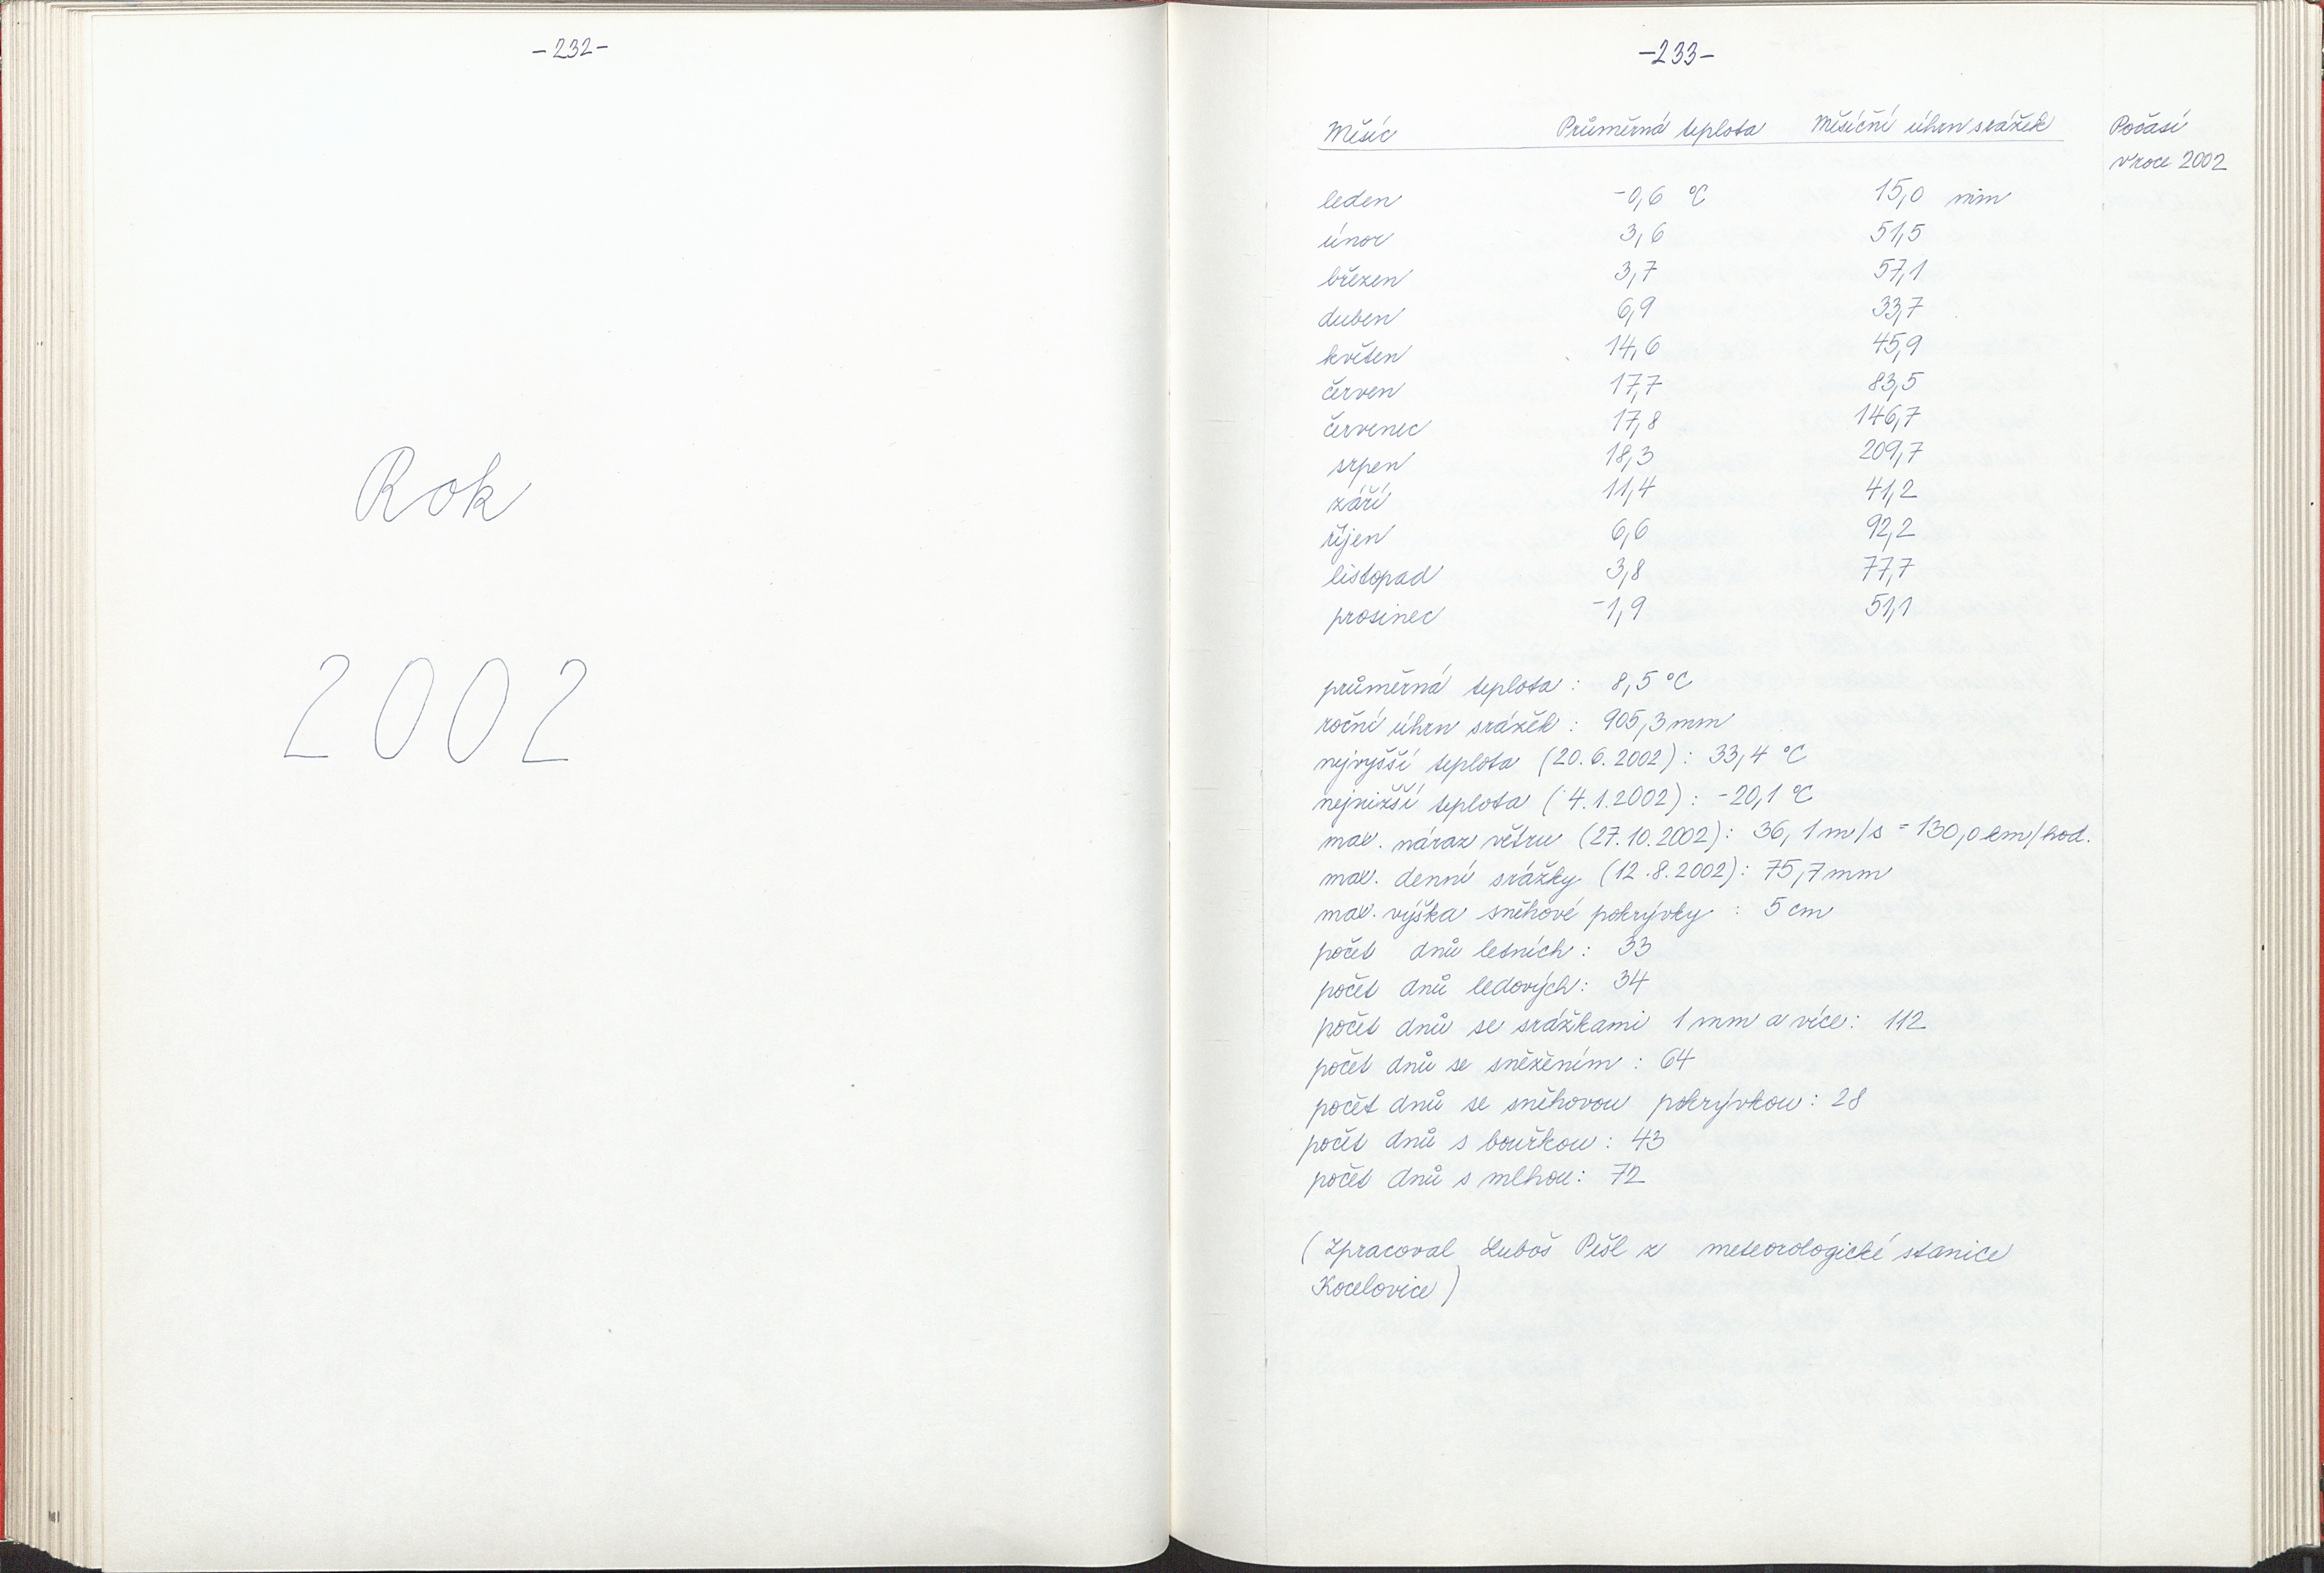 -232-
Rok
2002
-233-
Měsíc Průměrná teplota Měsíční úhrn srážek
Počasí
v roce 2002
leden -0,6 °C 15,0 mm
únor 3,6 51,5
březen 3,7 57,1
duben 6,9 33,7
květen 14,6 45,9
červen 17,7 83,5
červenec 17,8 146,7
srpen 18,3 209,7
září 11,4 41,2
říjen 6,6 92,2
listopad 3,8 77,7
prosinec -1,9 51,1
průměrná teplota : 8,5 °C
roční úhrn srážek : 905,3 mm
nejvyšší teplota (20.6.2002) : 33,4 °C
nejnižší teplota (4.1.2002) : -20,1 °C
max. náraz větru (27.10.2002) : 36,1 m/s = 130,0 km/hod.
max. denní srážky (12.8.2002) : 75,7 mm
max. výška sněhové pokrývky : 5 cm
počet dnů letních : 33
počet dnů ledových : 34
počet dnů se srážkami 1 mm a více : 112
počet dnů se sněžením : 64
počet dnů se sněhovou pokrývkou : 28
počet dnů s bouřkou : 43
počet dnů s mlhou : 72
(Zpracoval Luboš Pešl z meteorologické stanice
Kocelovice)